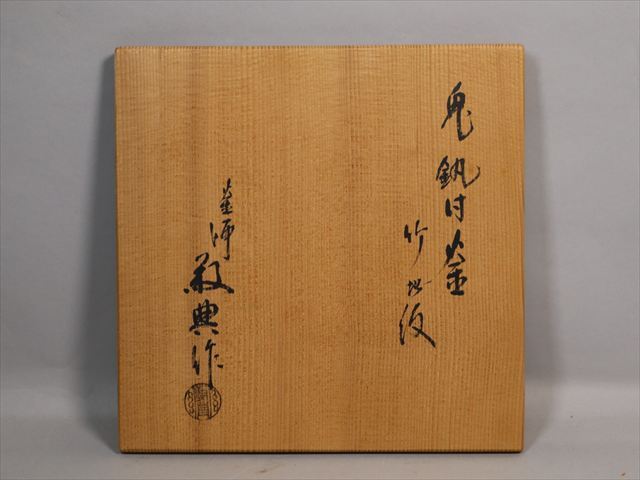 鬼釻付釜
竹地紋
釜師 敬典作